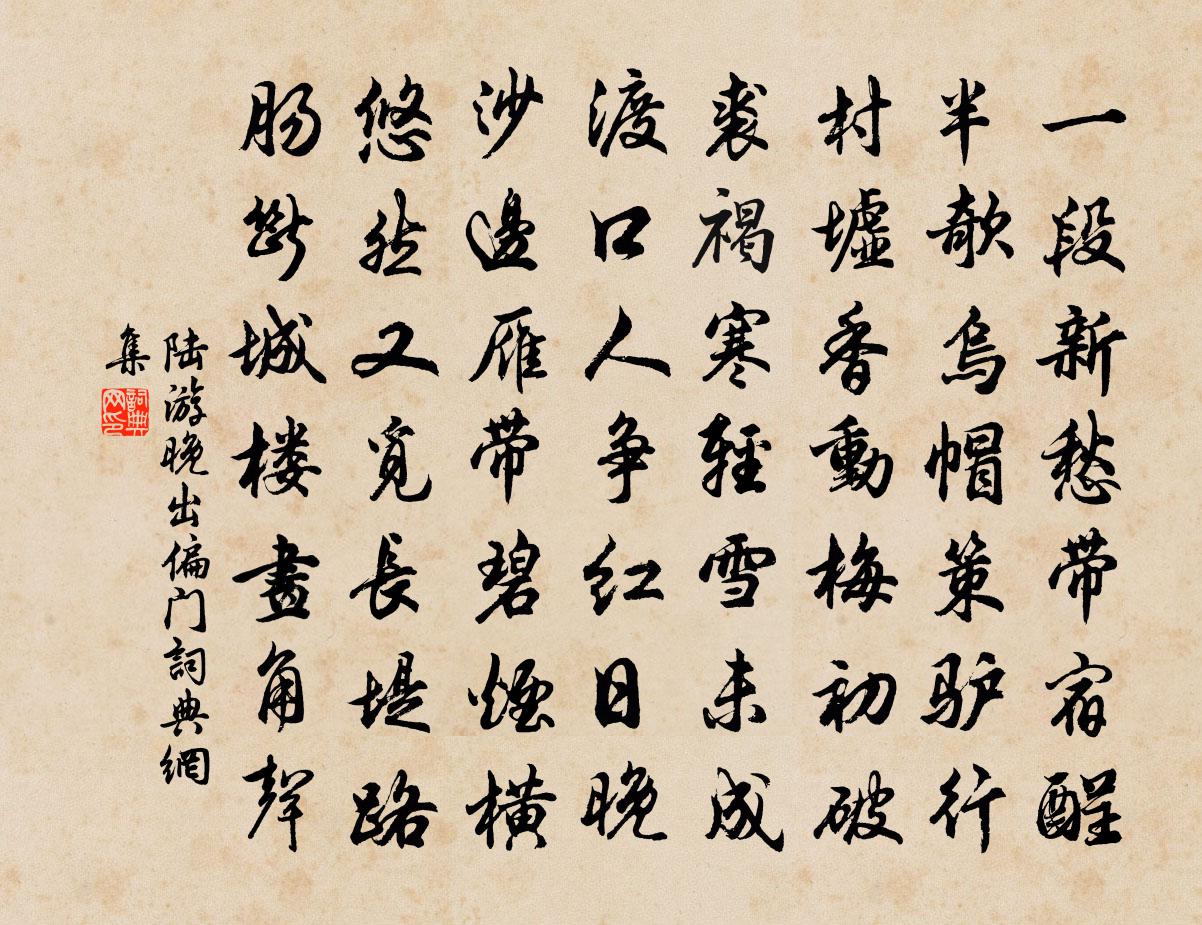 一段新愁带宿酲
半欹烏帽策驴行
村墟香動梅初破
裘褐寒輕雪未成
渡口人争红日晚
沙邊雁带碧煙横
悠然又觅長堤路
肠断城楼畫角聲
陆游晚出偏门詞典網
集
詞典网印